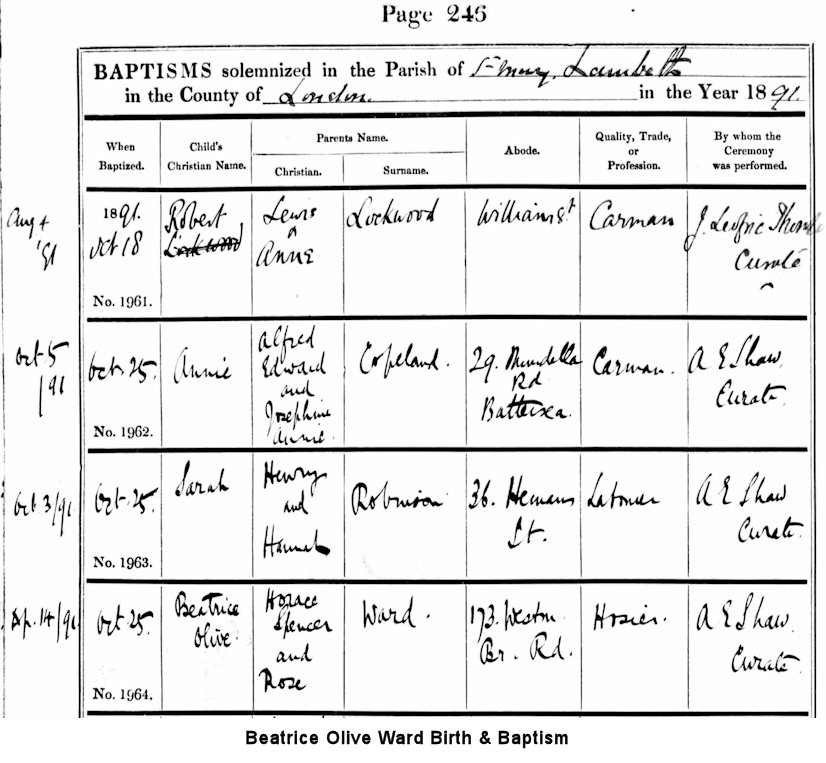 Page 246
BAPTISMS solemnized in the Parish of St Mary, Lambeth
in the County of London. in the Year 1891.
When Baptized.
Child's Christian Name.
Parents Name.
Christian.
Surname.
Abode.
Quality, Trade, or Profession.
By whom the Ceremony was performed.
Aug 4
'91
1891.
Oct 18
No. 1961.
Robert
Lockwood
Lewis
&
Annie
Lockwood
William St
Carman
J. Leofric
Curate
Oct 5
/91
Oct. 25.
No. 1962.
Annie
Alfred
Edward
and
Josephine
Annie
Copeland.
29. Mundella
Rd
Battersea.
Carman.
A E Shaw,
Curate.
Oct 3/91
Oct. 25.
No. 1963.
Sarah
Henry
and
Hannah
Robinson
36. Hemans
St.
Labourer
A E Shaw
Curate.
Sep. 14/91
Oct. 25
No. 1964.
Beatrice
Olive.
Horace
Spencer
and
Rose
Ward.
173. Westm.
Br. Rd.
Hosier.
A E Shaw.
Curate.
Beatrice Olive Ward Birth & Baptism